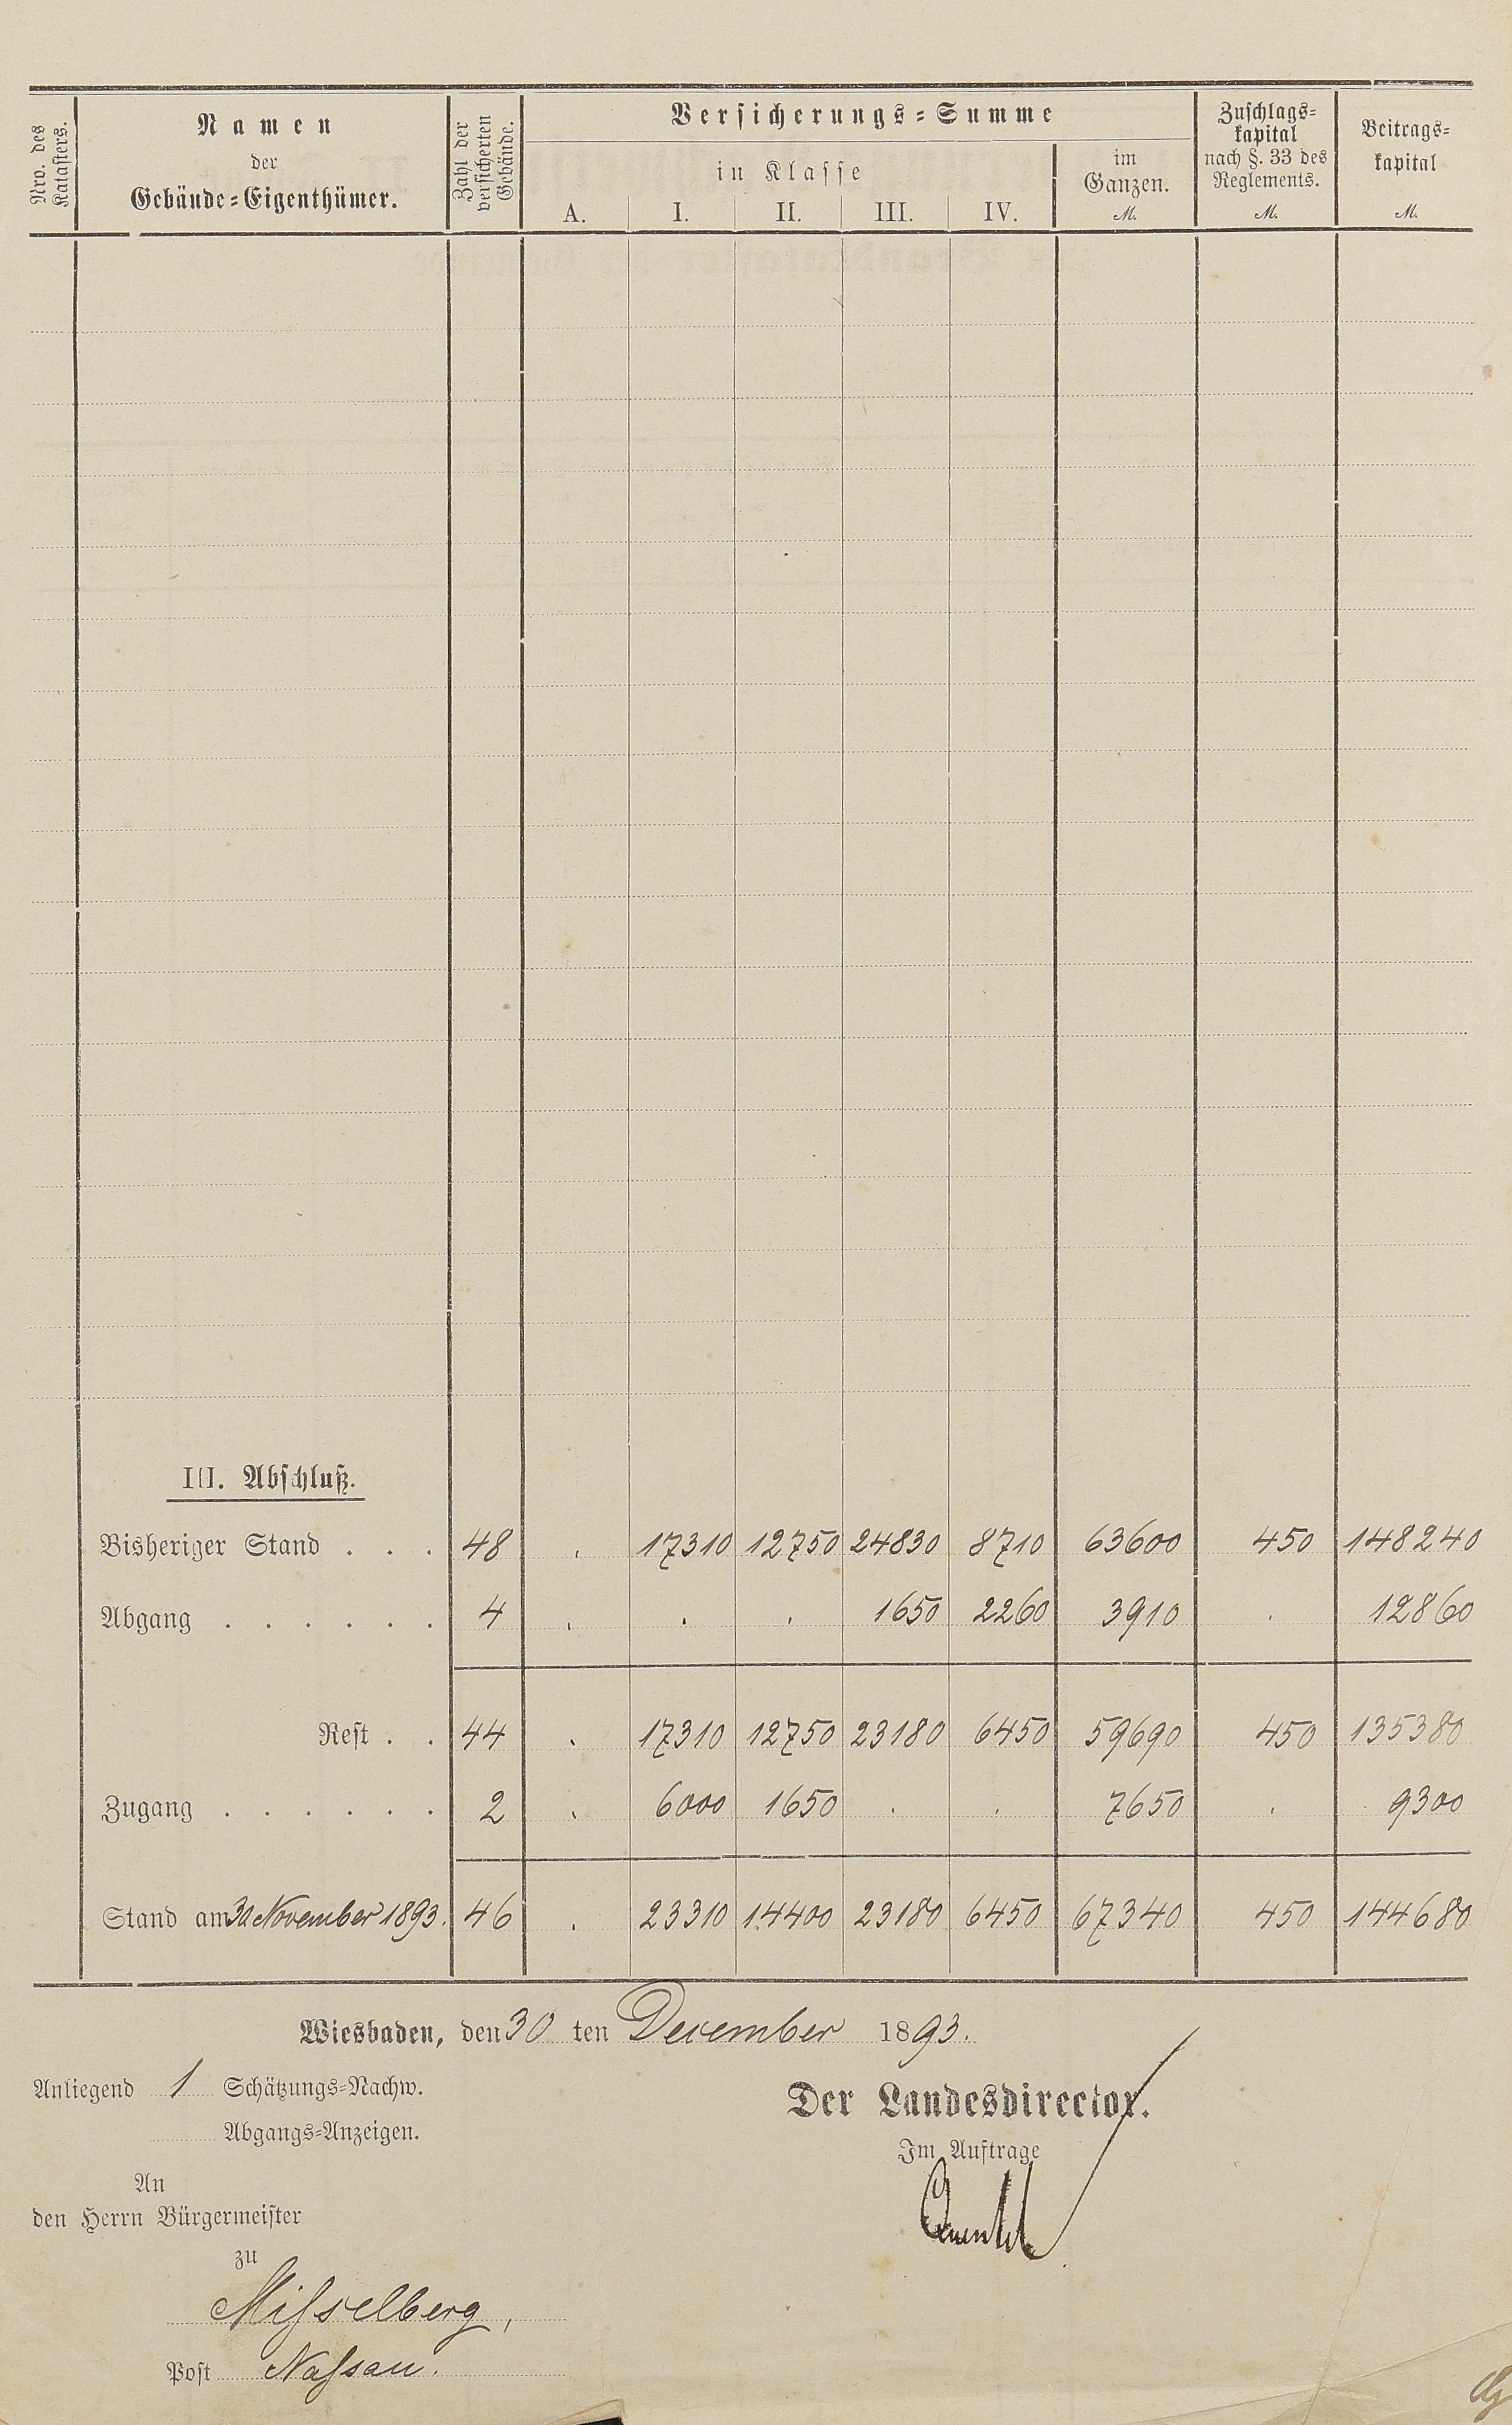 Nro. des Katasters.
Namen
der
Gebäude=Eigenthümer.
Zahl der versicherten Gebäude.
Versicherungs=Summe
in Klasse
A. I. II. III. IV.
im
Ganzen.
M.
Zuschlags=
kapital
nach §. 33 des
Reglements.
M.
Beitrags=
kapital
M.
III. Abschluß.
Bisheriger Stand . . . 48 . 17310 12750 24830 8710 63600 450 148240
Abgang . . . . . . 4 . . . 1650 2260 3910 . 12860
Rest . . 44 . 17310 12750 23180 6450 59690 450 135380
Zugang . . . . . . 2 . 6000 1650 . . 7650 . 9300
Stand am 30 November 1893. 46 . 23310 14400 23180 6450 67340 450 144680
Wiesbaden, den 30 ten December 1893.
Anliegend 1 Schätzungs=Nachw.
Abgangs=Anzeigen.
Der Landesdirector.
Im Auftrage
An
den Herrn Bürgermeister
zu
Misselberg,
Post Nassau.